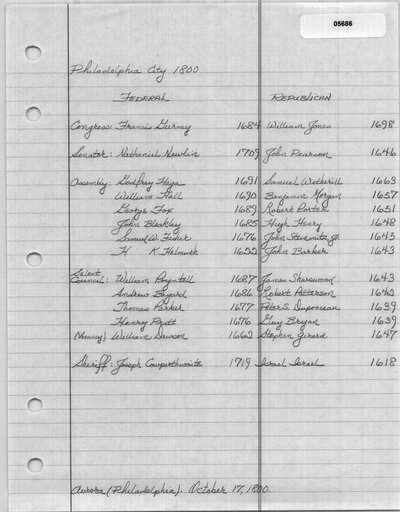 05686
Philadelphia City 1800
FEDERAL REPUBLICAN
Congress: Francis Gurney 1684 William Jones 1698
Senator: Nathaniel Newlin 1709 John Pearson 1646
Assembly: Godfrey Haga 1691 Samuel Wetherill 1663
William Hall 1690 Benjamin Morgan 1657
George Fox 1689 Robert Porter 1651
John Bleakley 1685 Hugh Henry 1648
Samuel W. Fisher 1676 John Steinmetz Jr. 1645
H K Helmuth 1622 John Barker 1643
Select
Council: William Poyntell 1687 James Sharswood 1643
Andrew Bayard 1686 Robert Patterson 1642
Thomas Parker 1677 Peter S. Duponceau 1639
Henry Pratt 1676 Guy Bryan 1639
(Vacancy) William Dawson 1662 Stephen Girard 1647
Sheriff: Joseph Cowperthwaite 1719 Israel Israel 1618
Aurora (Philadelphia). October 17, 1800.